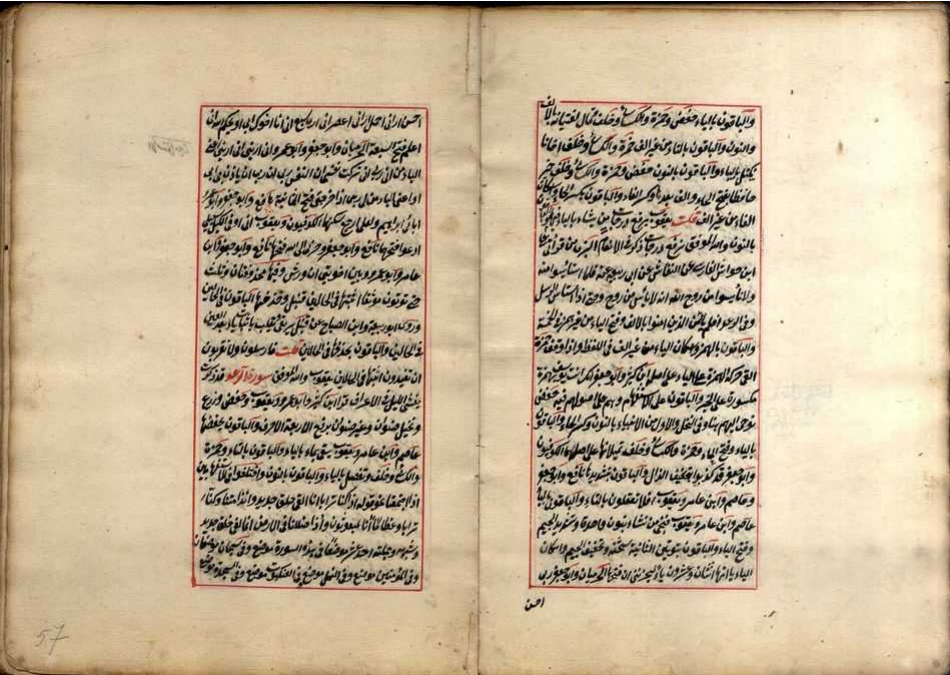 والباقون بالياء حفص وحمزة والكسائي وخلف وقال لفتيانه بالالف
والنون والباقون بالتاء من غير الف حمزة والكسائي وخلف اخانا
يكتل بالياء والباقون بالنون حفص وحمزة والكسائي وخلف خير
حافظا بفتح الحاء والف بعدها وكسر الفاء والباقون بكسر الحاء واسكان
الفاء من غير الف قلت يعقوب يرفع درجات من يشاء بالياء فيهما والباقون
بالنون والله الموفق نرفع درجات ذكر في الانعام البزي من قراءتي على
ابن خواستي الفارسي عن النقاش عن ابي ربيعة عنه فلما استايسوا منه
ولا تايسوا من روح الله انه لا يايس من روح وحتى اذا استايس الرسل
وفي الرعد افلم يايس الذين امنوا بالالف وفتح الياء من غير همزة في الخمسة
والباقون بالهمزة واسكان الياء من غير الف في اللفظ واذا وقف حمزة
القى حركة الهمزة على الياء على اصله ابن كثير وابو جعفر انك لانت يوسف بهمزة
مكسورة على الخبر والباقون على الاستفهام وهم على اصولهم فيه حفص
نوحي اليهم هنا وفي النحل والاول من الانبياء بالنون وكسر الحاء والباقون
بالياء وفتح الحاء وحمزة والكسائي وخلف يميلانها على اصلها الكوفيون
وابو جعفر قد كذبوا بتخفيف الذال والباقون بتشديدها نافع وابو جعفر
وعاصم وابن عامر ويعقوب افلا تعقلون بالتاء والباقون بالياء
عاصم وابن عامر ويعقوب فنجي من نشاء بنون واحدة وتشديد الجيم
وفتح الياء والباقون بنونين الثانية ساكنة وتخفيف الجيم واسكان
الياء ياءاتها اثنتان وعشرون ياء ليحزنني ان فتحها الحرميان وابو جعفر ربي
احسن
احسن اراني احمل اراني اعصر اني ارى سبع اني انا اخوك ابي او يحكم الله اني
اعلم فتح السبعة الحرميان وابو جعفر وابو عمرو اني اريني اني اريني فتح
الياء من اني ربي اني تركت نفسي ان النفس ربي ان ربي انه ياذن لي ابي
او اعني الياء من لي ربي اذا اخرجني فتح الثمانية نافع وابو جعفر وابو عمرو
ابائي ابراهيم ولعلي ارجع سكنها الكوفيون ويعقوب اني اوفي الكيل سبيلي
ادعو فتحها نافع وابو جعفر وحزني الى الله فتحها نافع وابو جعفر وابن
عامر وابو عمرو وبين اخوتي ان ورش وفيها محذوفتان وثلث
حتى تؤتون موثقا اثبتها في الحالين ابن كثير واثبتها في الوصل
وروى ابو ربيعة وابن الصباح عن قنبل نرتعي باثبات ياء بعد العين
في الحالين والباقون بحذفها في الحالين قلت فارسلون ولا تقربون
ان تفندون اثبتها في الحالين يعقوب والله الموفق سورة الرعد قد ذكرت
يغشى الليل في الاعراف قرا ابن كثير وابو عمرو ويعقوب وحفص وزرع
ونخيل صنوان وغير صنوان برفع الاربعة الاحرف والباقون بخفضها
عاصم وابن عامر ويعقوب يسقى بماء بالياء والباقون بالتاء وحمزة
والكسائي وخلف ويفضل بالياء والباقون بالنون واختلفوا في الاستفهامين
اذا اجتمعا نحو قوله ائذا كنا ترابا انا لفي خلق جديد وائذا متنا وكنا
ترابا وعظاما ائنا لمبعوثون وائذا ضللنا في الارض ائنا لفي خلق جديد
وشبهه وجملته احد عشر موضعا في هذه السورة موضع وفي سبحان موضعان
وفي المؤمنين موضع وفي النمل موضع وفي العنكبوت موضع وفي السجدة موضع
57